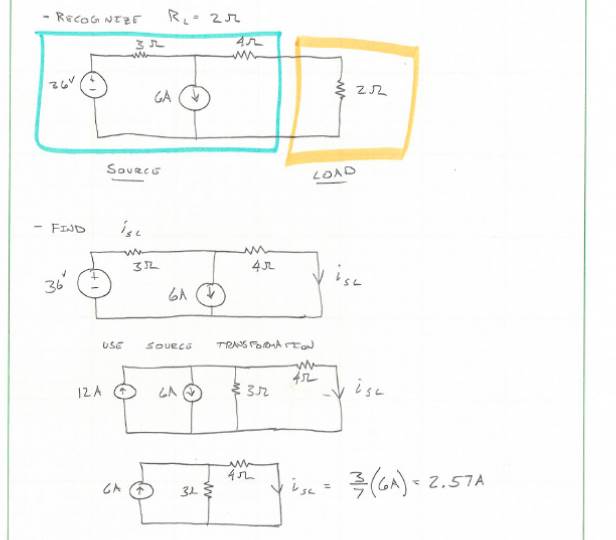 - RECOGNIZE R_L = 2Ω
3Ω 4Ω
36V + - 6A 2Ω
SOURCE LOAD
- FIND i_SC
36V + - 3Ω 6A 4Ω i_SC
USE SOURCE TRANSFORMATION
12A 6A 3Ω 4Ω i_SC
6A 3Ω 4Ω i_SC = 3/7 (6A) = 2.57A